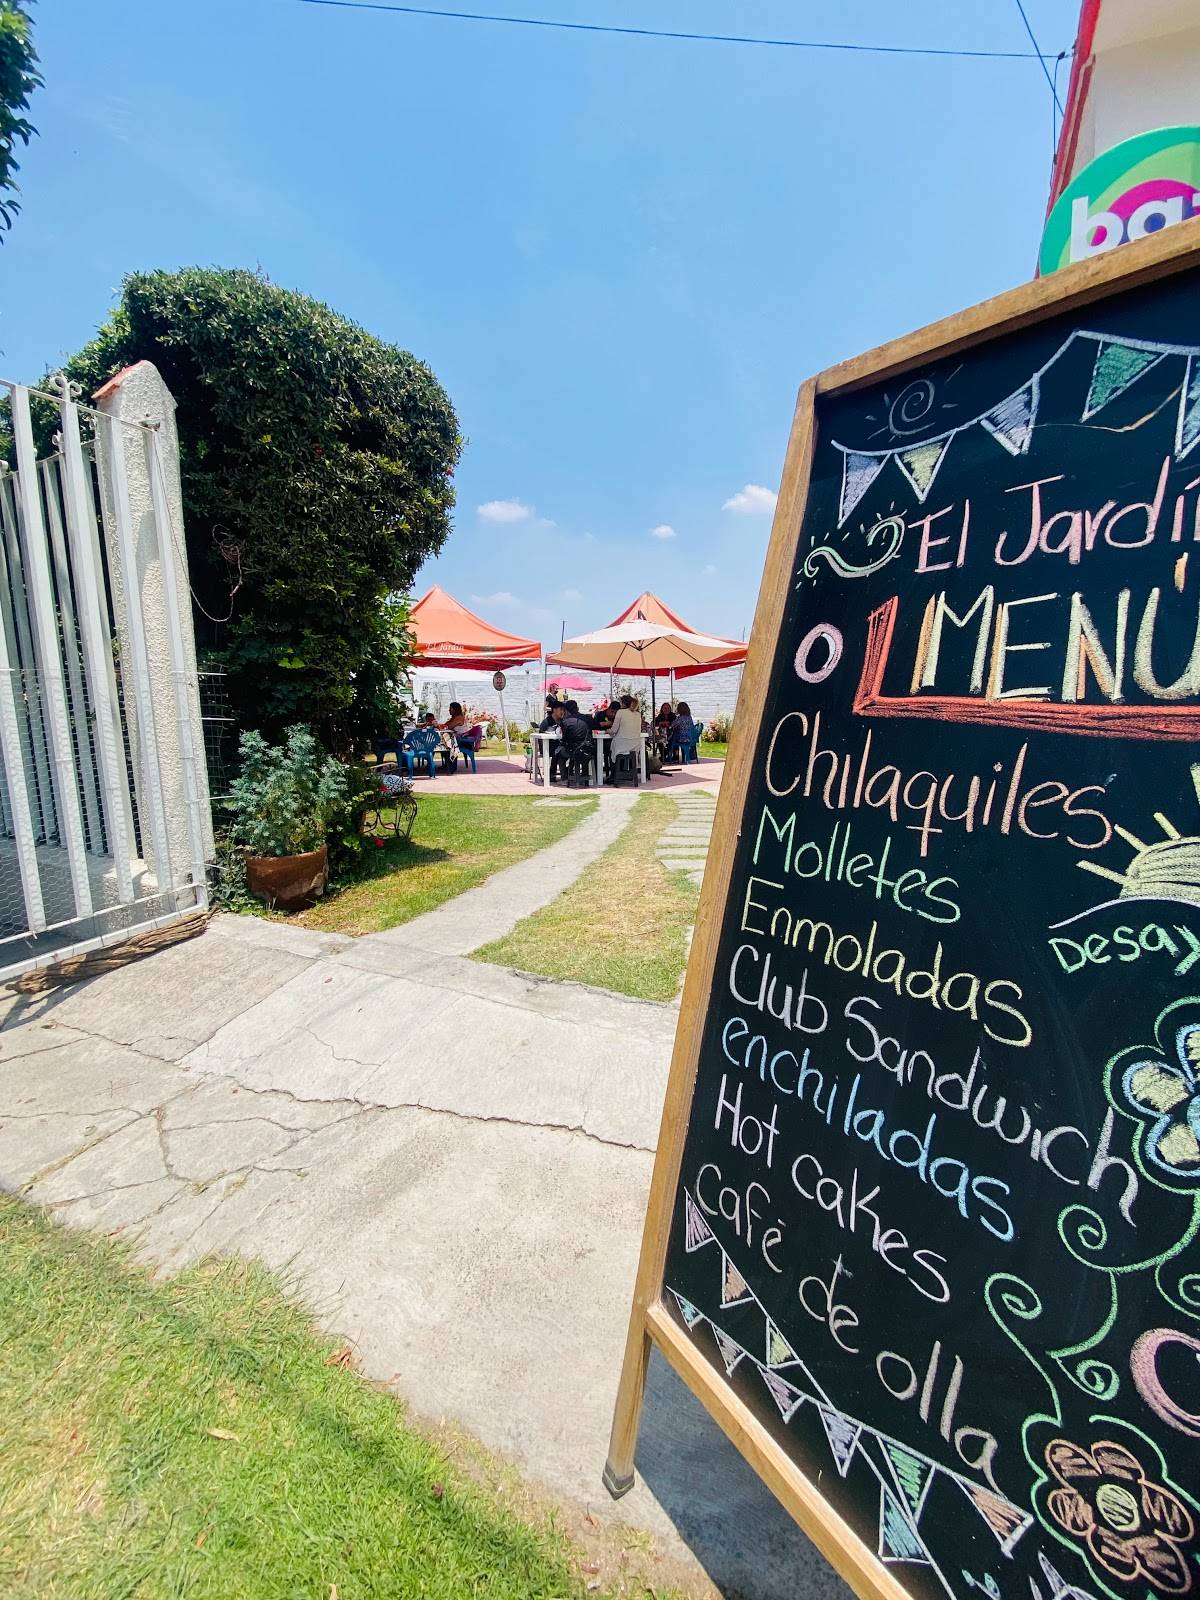 ba
El Jardí
MENÚ
Chilaquiles
Molletes
Enmoladas
Club Sandwich
enchiladas
Hot cakes
Café de olla
Desay
El Jardín